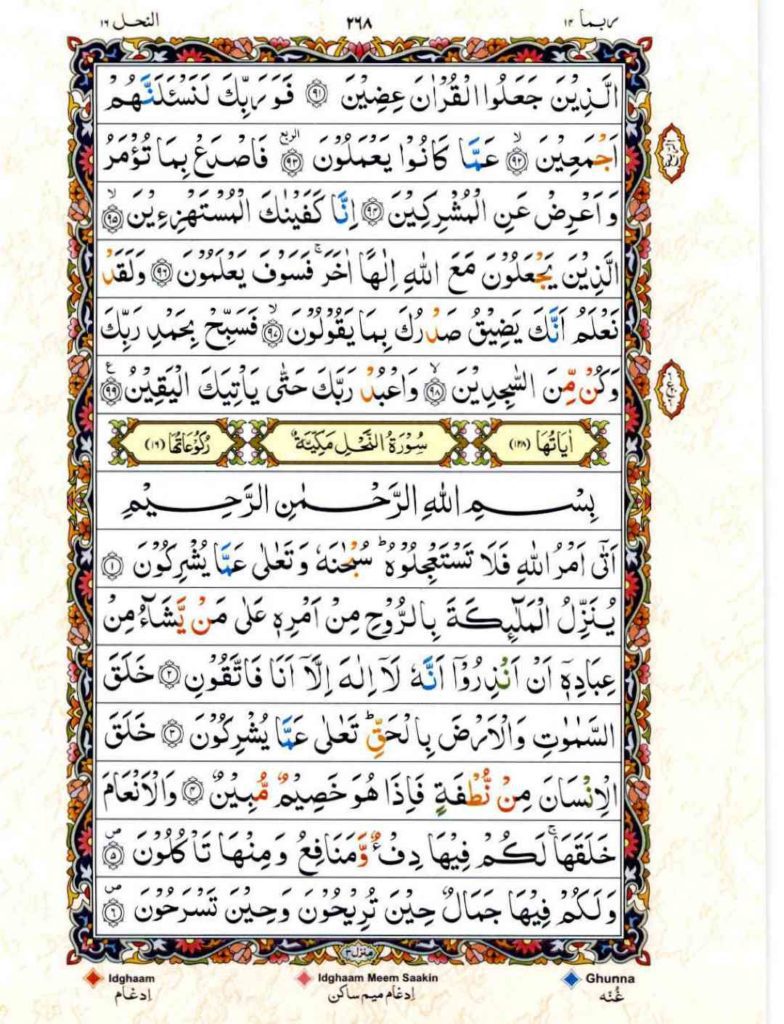 ربما ١٤ ٢٦٨ النحل ١٦
الَّذِيْنَ جَعَلُوا الْقُرْاٰنَ عِضِيْنَ ﴿٩١﴾ فَوَرَبِّكَ لَنَسْـَٔلَنَّهُمْ
اَجْمَعِيْنَ ۙ﴿٩٢﴾ عَمَّا كَانُوْا يَعْمَلُوْنَ الربع ﴿٩٣﴾ فَاصْدَعْ بِمَا تُؤْمَرُ
وَاَعْرِضْ عَنِ الْمُشْرِكِيْنَ ﴿٩٤﴾ اِنَّا كَفَيْنٰكَ الْمُسْتَهْزِءِيْنَ ۙ﴿٩٥﴾
الَّذِيْنَ يَجْعَلُوْنَ مَعَ اللّٰهِ اِلٰهًا اٰخَرَ ۚ فَسَوْفَ يَعْلَمُوْنَ ﴿٩٦﴾ وَلَقَدْ
نَعْلَمُ اَنَّكَ يَضِيْقُ صَدْرُكَ بِمَا يَقُوْلُوْنَ ۙ﴿٩٧﴾ فَسَبِّحْ بِحَمْدِ رَبِّكَ
وَكُنْ مِّنَ السّٰجِدِيْنَ ۙ﴿٩٨﴾ وَاعْبُدْ رَبَّكَ حَتّٰى يَاْتِيَكَ الْيَقِيْنُ ع ﴿٩٩﴾
اٰيَاتُهَا (١٢٨) سُوْرَةُ النَّحْلِ مَكِّيَّةٌ رُكُوْعَاتُهَا (١٦)
بِسْمِ اللّٰهِ الرَّحْمٰنِ الرَّحِيْمِ
اَتٰٓى اَمْرُ اللّٰهِ فَلَا تَسْتَعْجِلُوْهُ ؕ سُبْحٰنَهٗ وَتَعٰلٰى عَمَّا يُشْرِكُوْنَ ﴿١﴾
يُنَزِّلُ الْمَلٰٓئِكَةَ بِالرُّوْحِ مِنْ اَمْرِهٖ عَلٰى مَنْ يَّشَآءُ مِنْ
عِبَادِهٖۤ اَنْ اَنْذِرُوْۤا اَنَّهٗ لَاۤ اِلٰهَ اِلَّاۤ اَنَا فَاتَّقُوْنِ ﴿٢﴾ خَلَقَ
السَّمٰوٰتِ وَالْاَرْضَ بِالْحَقِّ ؕ تَعٰلٰى عَمَّا يُشْرِكُوْنَ ﴿٣﴾ خَلَقَ
الْاِنْسَانَ مِنْ نُّطْفَةٍ فَاِذَا هُوَ خَصِيْمٌ مُّبِيْنٌ ﴿٤﴾ وَالْاَنْعَامَ
خَلَقَهَا ۚ لَكُمْ فِيْهَا دِفْءٌ وَّمَنَافِعُ وَمِنْهَا تَاْكُلُوْنَ ص ﴿٥﴾
وَلَكُمْ فِيْهَا جَمَالٌ حِيْنَ تُرِيْحُوْنَ وَحِيْنَ تَسْرَحُوْنَ ص ﴿٦﴾
منزل ٣
Idghaam Idghaam Meem Saakin Ghunna
اِدغام اِدغام میم ساکن غُنّه